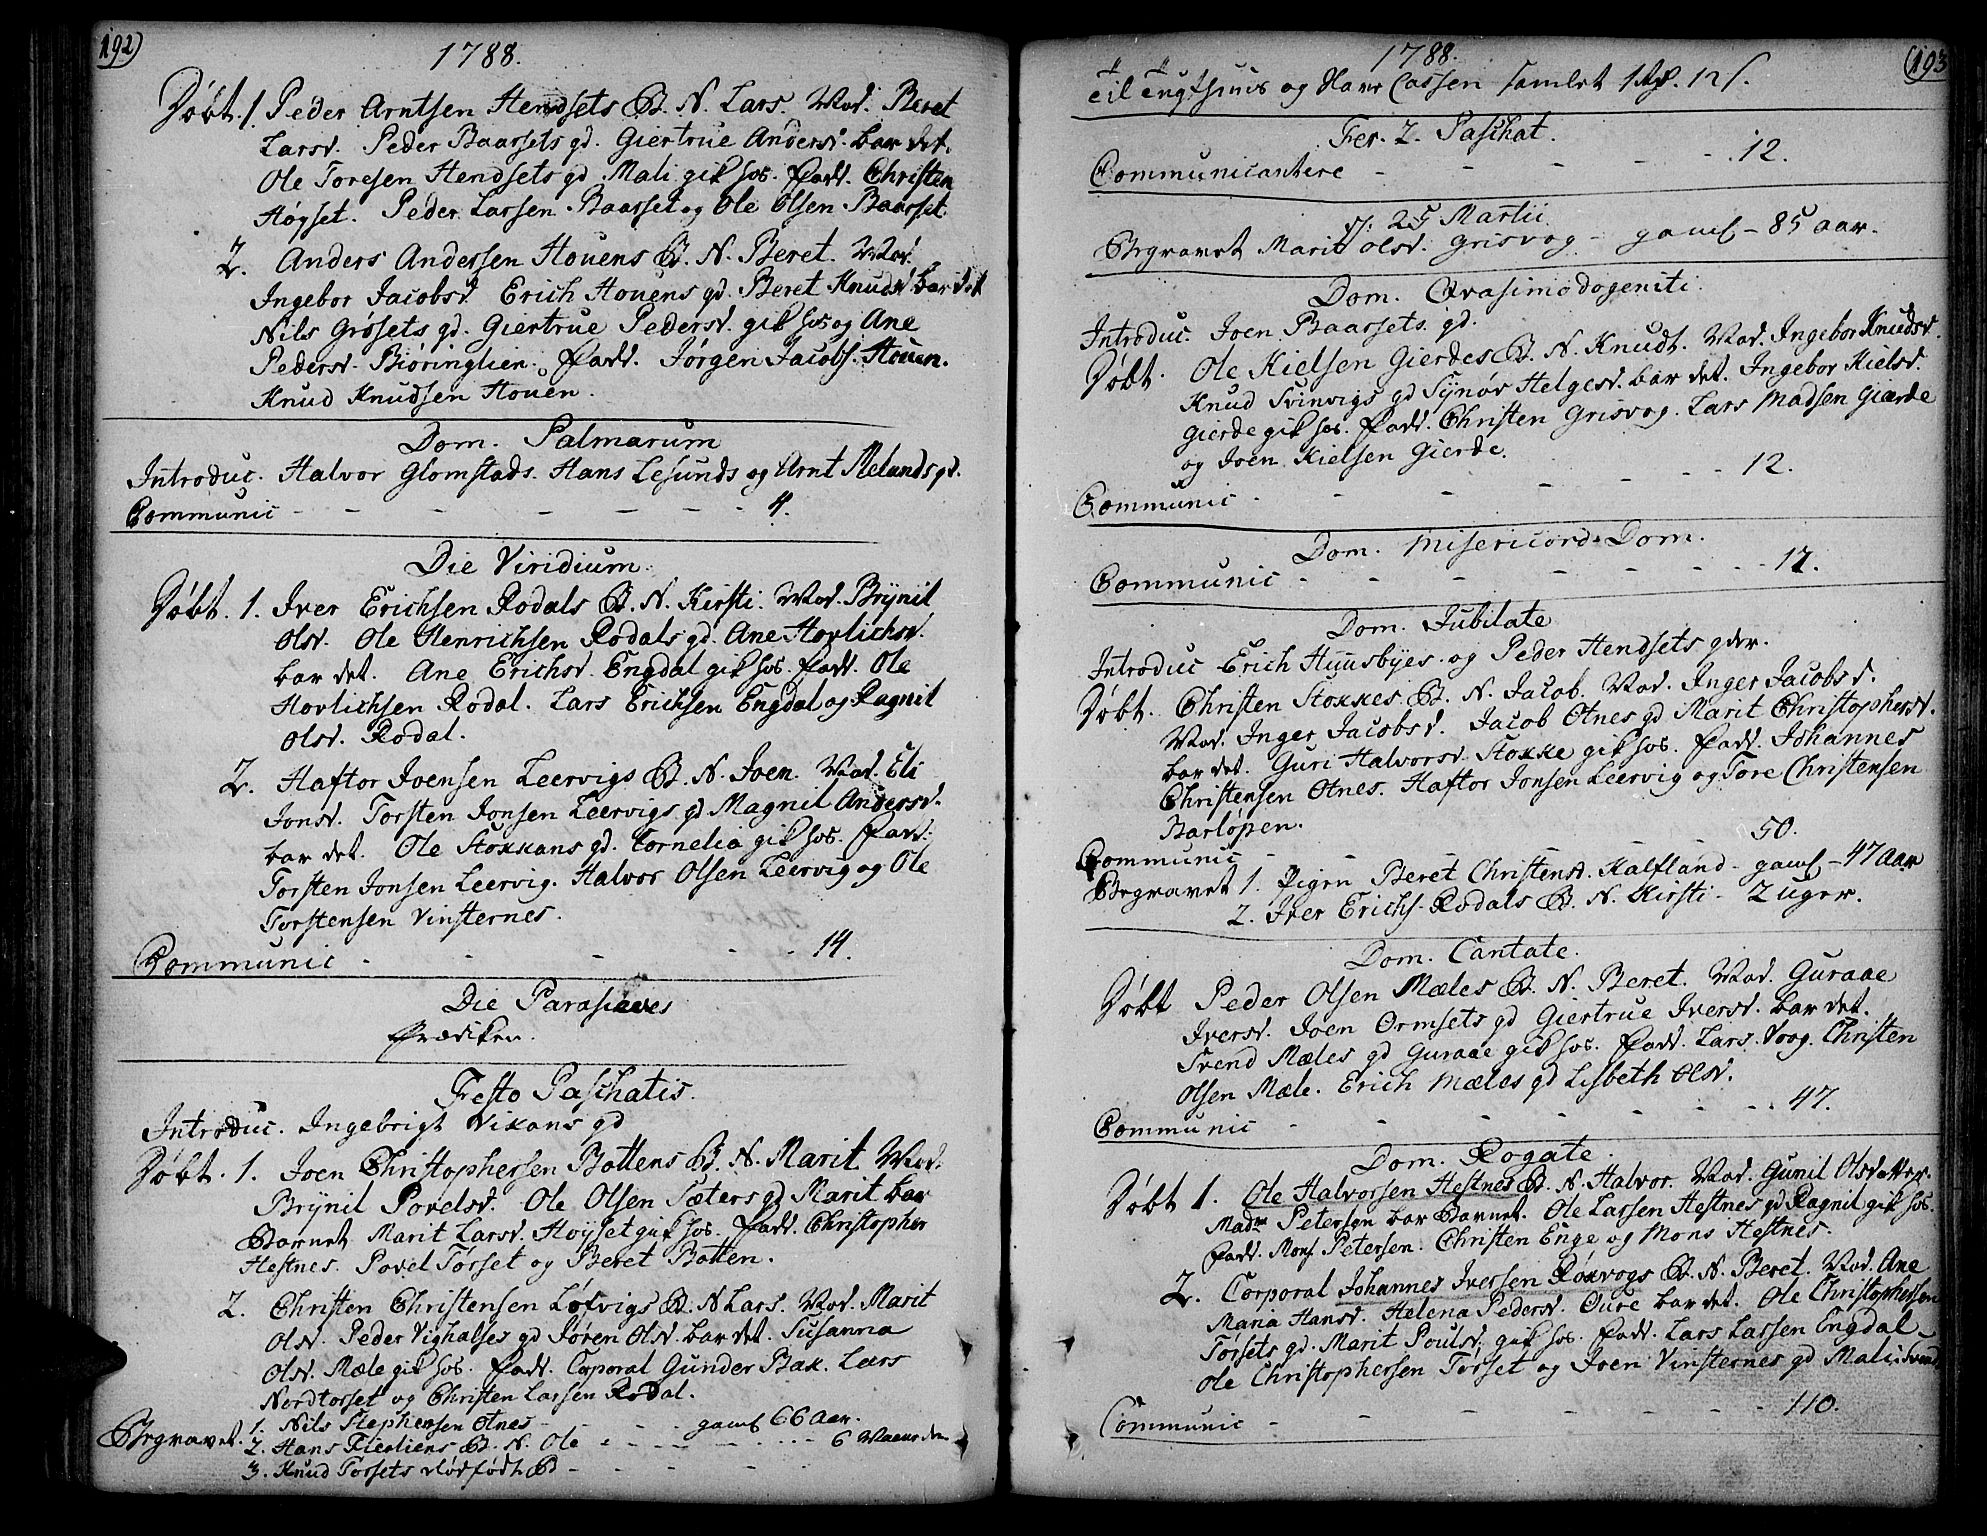 192)
1788.
Døbt. 1. Peder Arntsen Hendsets B. N. Lars. Mod. Beret
Larsd. Peder Baarsets gd. Giertrue Andersd. bar det.
Ole Toresen Hendsets gd. Mali gik hos. Fadd. Christen
Høyset. Peder Larsen Baarset og Ole Olsen Baarset.
2. Anders Andersen Houens B. N. Beret. Mod.
Ingebor Jacobsd. Erich Houens gd. Beret Knudsd bar det
Nils Grøsets gd. Giertrue Pedersd. gik hos og Ane
Pedersd. Biøringlien. Fadd. Jørgen Jacobs. Houen.
Knud Knudsen Houen.
Dom. Palmarum
Introduc. Halvor Glomstads. Hans Lesunds og Arnt Melands gd.
Communic - - - - - - 4.
Die Viridium.
Døbt. 1. Iver Erichsen Rodals B. N. Kirsti. Mod. Brynil
Olsd. Ole Henrichsen Rodals gd. Ane Hovlichsd.
bar det. Ane Erichsd. Engdal gik hos. Fadd. Ole
Hovlichsen Rodal. Lars Erichsen Engdal og Ragnil
Olsd. Rodal.
2. Haftor Joensen Leervigs B. N. Joen. Mod. Eli
Jonsd. Torsten Jonsen Leervigs gd Magnil Andersd.
bar det. Ole Stokkans gd. Cornelia gik hos. Fadd.
Torsten Jonsen Leervig. Halvor Olsen Leervig og Ole
Torstensen Vinsternes.
Communic - - - - - 14.
Die Parasceves
Prædiken.
Festo Paschatis.
Introduc. Ingebrigt Vikans gd
Døbt. 1. Joen Christophersen Bottens B. N. Marit. Mod.
Brynil Povelsd. Ole Olsen Sæters gd Marit bar
Barnet Marit Larsd. Høyset gik hos. Fadd. Christopher
Hestnes. Povel Torset og Beret Botten.
2. Christen Christensen Løfvigs B. N Lars. Mod. Marit
Olsd. Peder Vighalses gd Søren Olsd. bar det. Susanna
Olsd. Mæle gik hos. Fadd. Corporal Gunder Bak. Lars
Nordtorset og Christen Larsen Rodal.
Begravet. 1. Nils Stephensen Otnes - - gaml 66 Aar.
2. Hans Flesliens B. N. Ole - - - - 6 Maaneder
3. Knud Torsets dødfødt B - - - -
193
1788.
til Tugthuus og Have Cassen samlet 1 Rd. 12 s.
Fer. 2. Paschat.
Communicantere - - - - - 12.
d. 25 Martii
Begravet Marit Olsd. Grisvog - gaml - 85 aar.
Dom. Qvasimodogeniti.
Introduc. Joen Baarsets gd.
Døbt. Ole Kielsen Gierdes B. N. Knudt. Mod. Ingebor Knudsd.
Knud Svinvigs gd Synøv Helgesd. bar det. Ingebor Kielsd.
Gierde gik hos. Fadd. Christen Grisvog. Lars Madsen Gierde
og Joen Kielsen Gierde.
Communic - - - - - 12.
Dom. Misericord. Dom.
Communic - - - - - - 17.
Dom. Jubilate
Introduc Erich Huusbyes og Peder Hendsets gder.
Døbt. Christen Stokkes B. N. Jacob. Mod. Inger Jacobsd.
Mod. Inger Jacobsd. Jacob Otnes gd Marit Christophersd.
bar det. Guri Halvorsd. Stokke gik hos. Fadd. Johannes
Christensen Otnes. Haftor Jonsen Leervig og Tore Christensen
Barløpen.
Communic - - - - - - 50.
Begravet 1. Pigen Beret Christensd. Kalfland - gaml - 47 Aar
2. Iver Erichs. Rodals B. N. Kirsti - 2 uger.
Dom. Cantate.
Døbt Peder Olsen Mæles B. N. Beret. Mod. Guraae
Iversd. Joen Ormsets gd Giertrue Iversd. bar det.
Svend Mæles gd Guraae gik hos. Fadd. Lars Voog. Christen
Olsen Mæle. Erich Mæles gd Lisbeth Olsd.
Communic - - - - - - 47.
Dom. Rogate.
Døbt 1. Ole Halvorsen Hestnes B. N. Halvor. Mod. Gunil Olsdatter.
Madme Petersen bar Barnet. Ole Larsen Hestnes gd Ragnil gik hos.
Fadd. Mons. Petersen. Christen Enge og Mons Hestnes.
2. Corporal Johannes Iversen Røkvogs B. N. Beret. Mod. Ane
Maria Hansd. Helena Pedersd. Oure bar det. Ole Christophersen
Torsets gd. Marit Poulsd. gik hos. Fadd. Lars Larsen Engdal
Ole Christophersen Torset og Joen Vinsternes gd Mali
Communic - - - - - - 110.